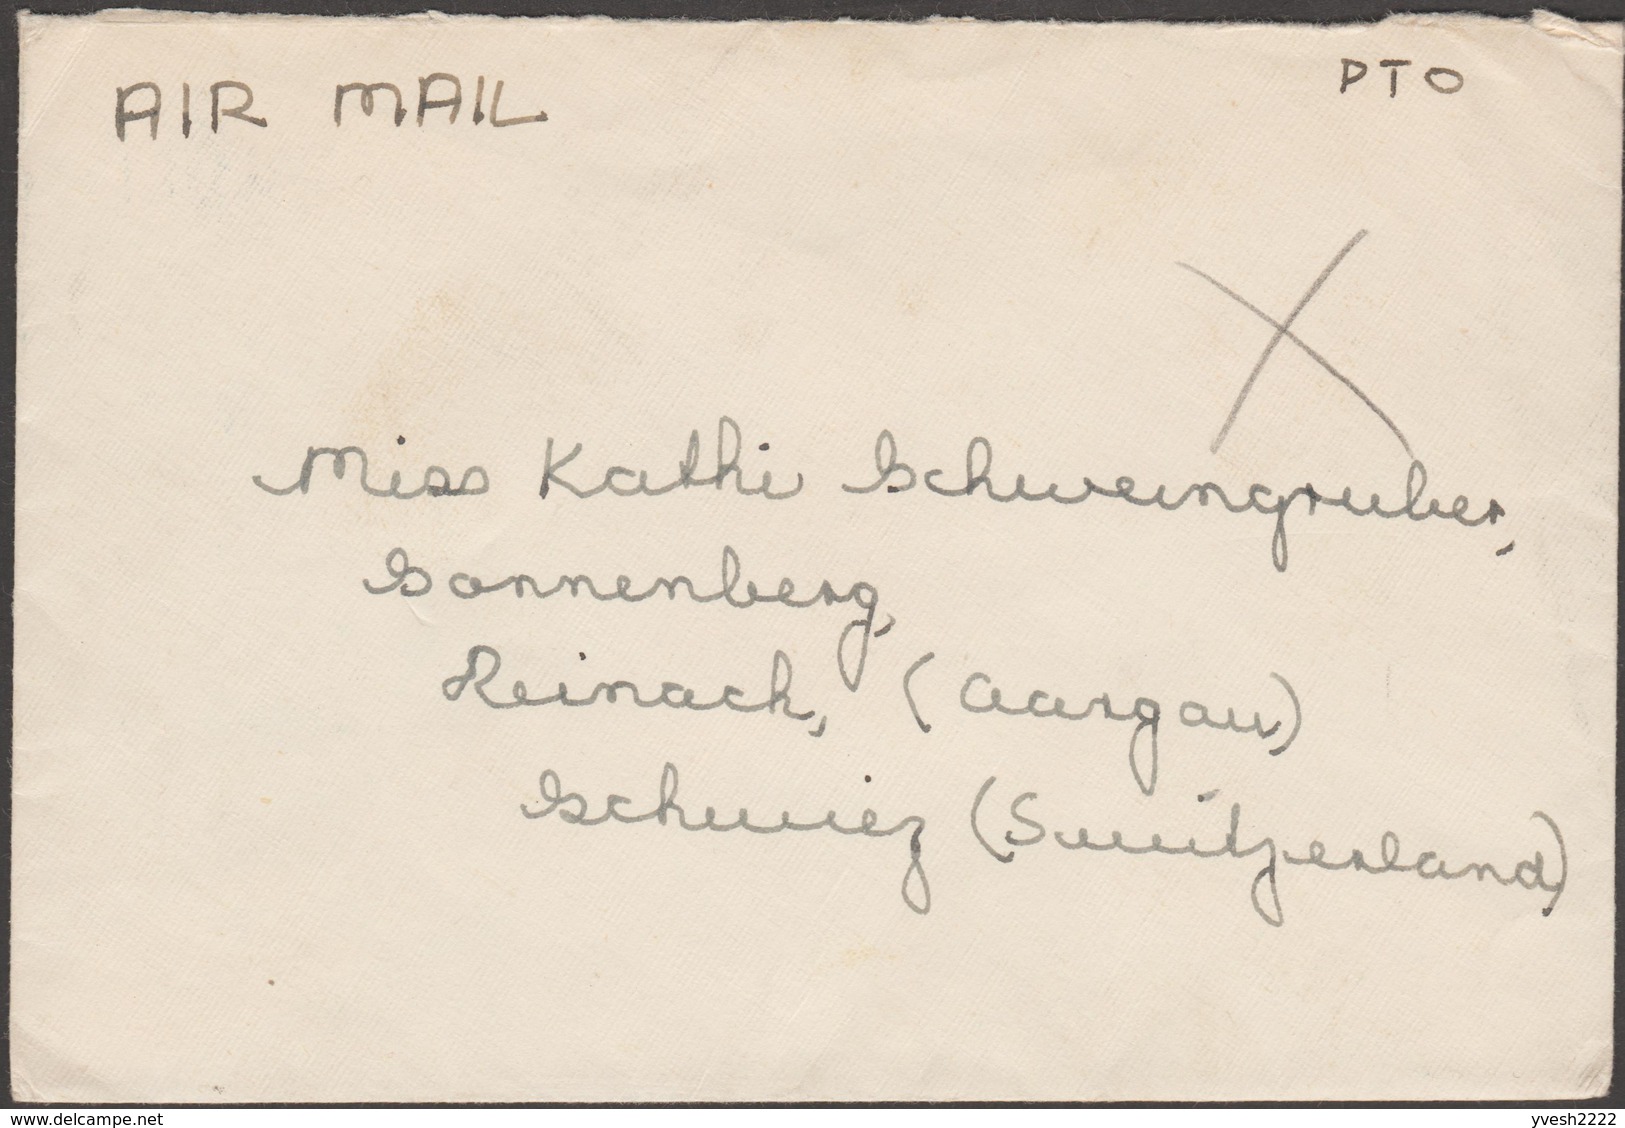 AIR MAIL
PTO
Miss Kathi Schweingruber,
Sonnenberg,
Reinach, (Aargau)
Schwiez (Switzerland)
www.delcampe.net
yvesh2222